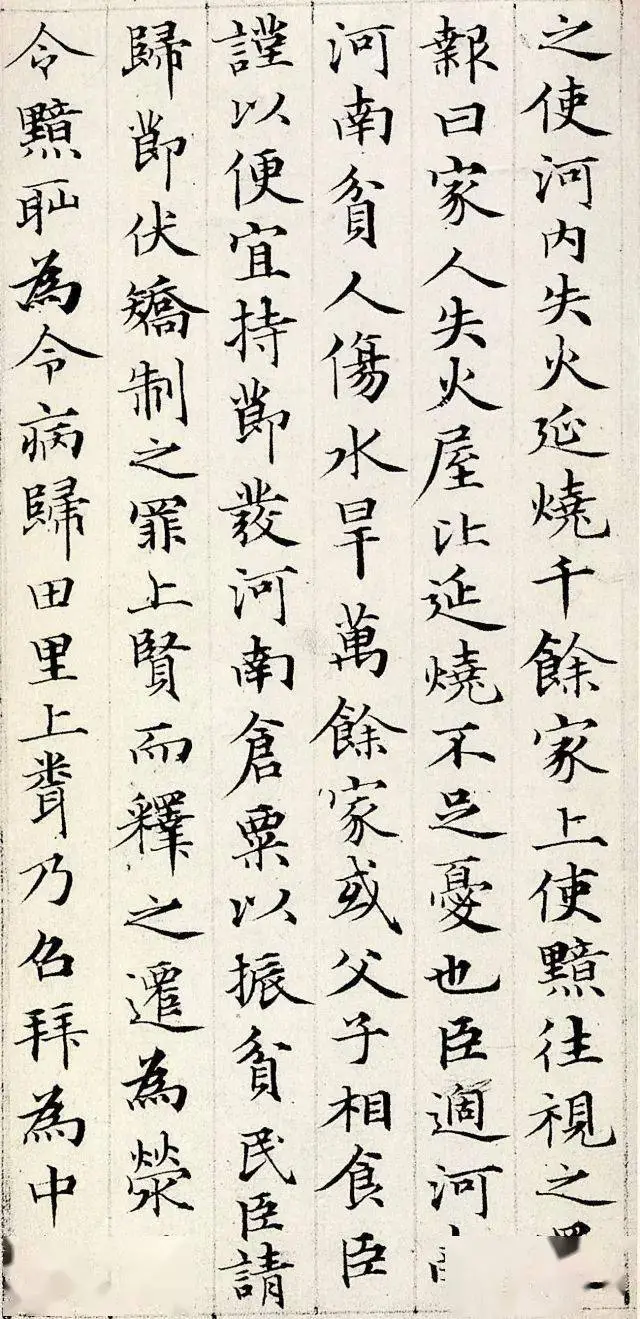 之使河內失火延燒千餘家上使黯往視之
報曰家人失火屋比延燒不足憂也臣過河
河南貧人傷水旱萬餘家或父子相食臣
謹以便宜持節發河南倉粟以振貧民臣請
歸節伏矯制之罪上賢而釋之遷為滎
令黯耻為令病歸田里上聞乃召拜為中